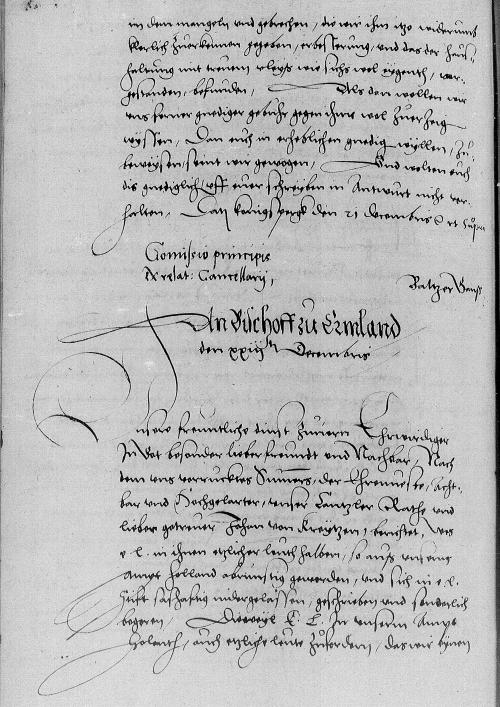 in dem mangeln und gebrechen, die wir ihm itzo widerumb
klerlich zuerkennen gegeben, erbesserung, und das der haus-
haltung mit treuem vleys wie sichs wol eygent, vor-
gestanden, befunden, Als dan wollen wir
uns ferner gnediger gebuhr gegen ihme wol zuerzeig
wyssen, Dan euch in erheblichen gnedig wyllen, zu
beweysen, seint wir gewogen, Und wolten euch
dis gnediglich uff euer schreyben in Antwurt nicht ver-
halten, Dat Konigspergk den 21 decembris
Comissio principis
Ex relat: Cancellarij,
Baltzer Gans
An Bischoff zu Ermland
den xxiij Decembris
Unsere freuntliche dinst zuuorn Ehrwirdiger
In Got besonder lieber freundt und Nachbar, Nach
dem uns vorruckts Sumers, der Ehrnueste, acht-
bar und Hochgelarter, unser Cantzler Rathe und
lieber getreuer Johan von Kreytzen, berichtet, wes
e. l. in ihnen etzlicher leuth halben, so aus unserm
Ampt Holland abtrunstig geworden, und sich in e. l.
Stift sashaftig nidergelassen, geschrieben und sonderlich
begeren, Dieweyl E. L. In unserm Ampt
Holandt, auch etzliche leute zufordern, das wir